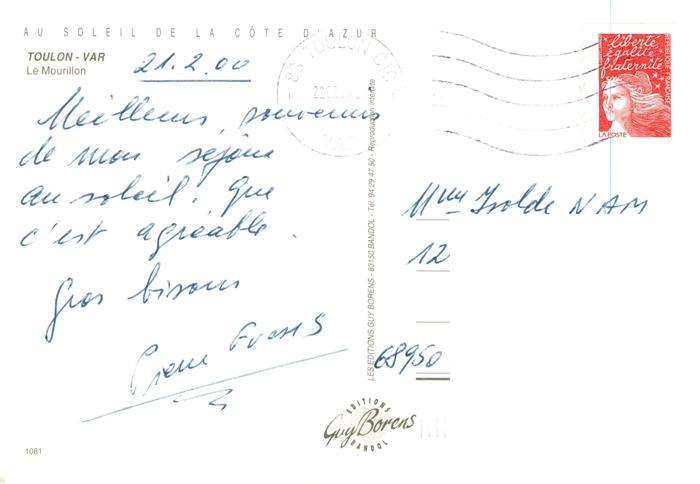 AU SOLEIL DE LA CÔTE D'AZUR
TOULON - VAR
Le Mourillon
21.2.00
Meilleurs souvenirs
de mon séjour
au soleil. Que
c'est agréable.
Gros bisous
Pierre
LES EDITIONS GUY BORENS - 83150 BANDOL - Tél. 94 29 47 50 - Reproduction interdite
83 TOULON CTC
VAR
liberté
égalité
fraternité
REPUBLIQUE FRANÇAISE
LA POSTE
Mme Isolde NAM
12
68950
EDITIONS
Guy Borens
BANDOL
1081